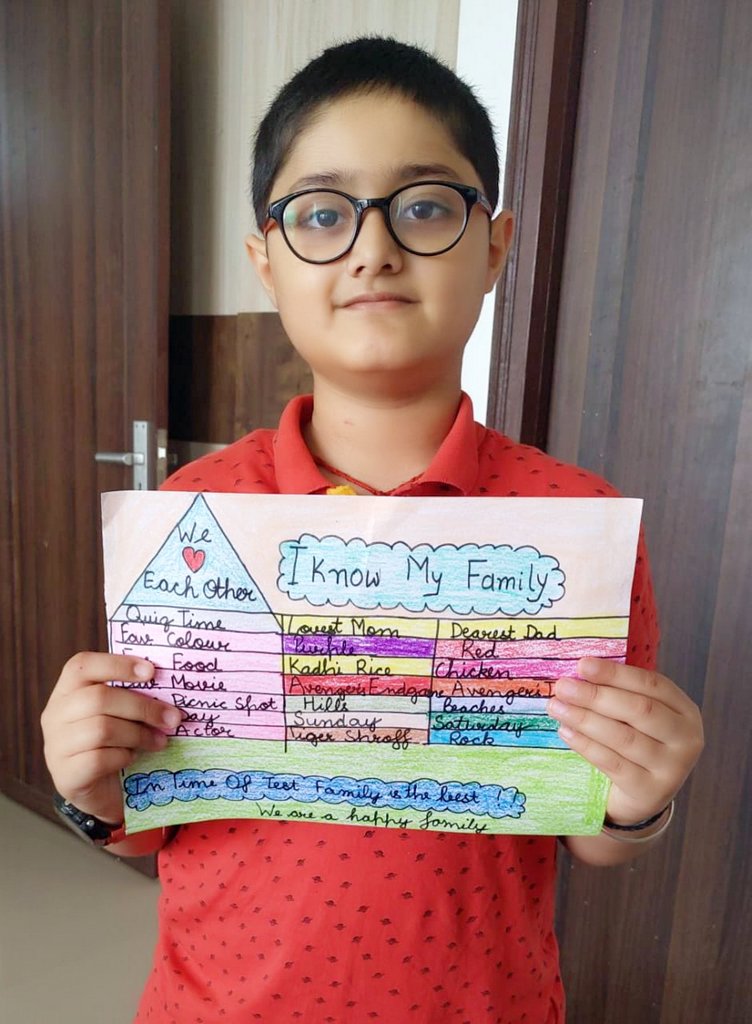 We
Each Other
I Know My Family
Quiz Time Lovest Mom Dearest Dad
Fav Colour Purple Red
Food Kadhi Rice Chicken
Movie Avengers Endgame Avengers
Picnic Spot Hills Beaches
Day Sunday Saturday
Actor Tiger Shroff Rock
In Time Of Test Family is the best !!
We are a happy family